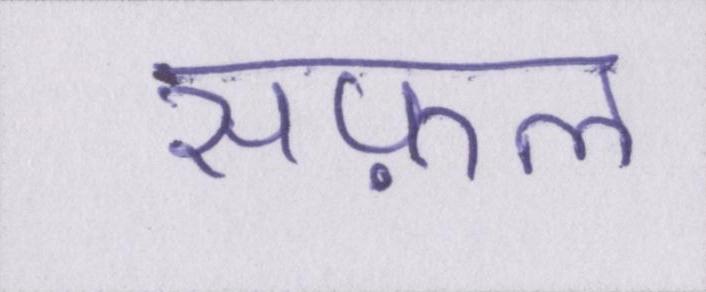 सफ़ल